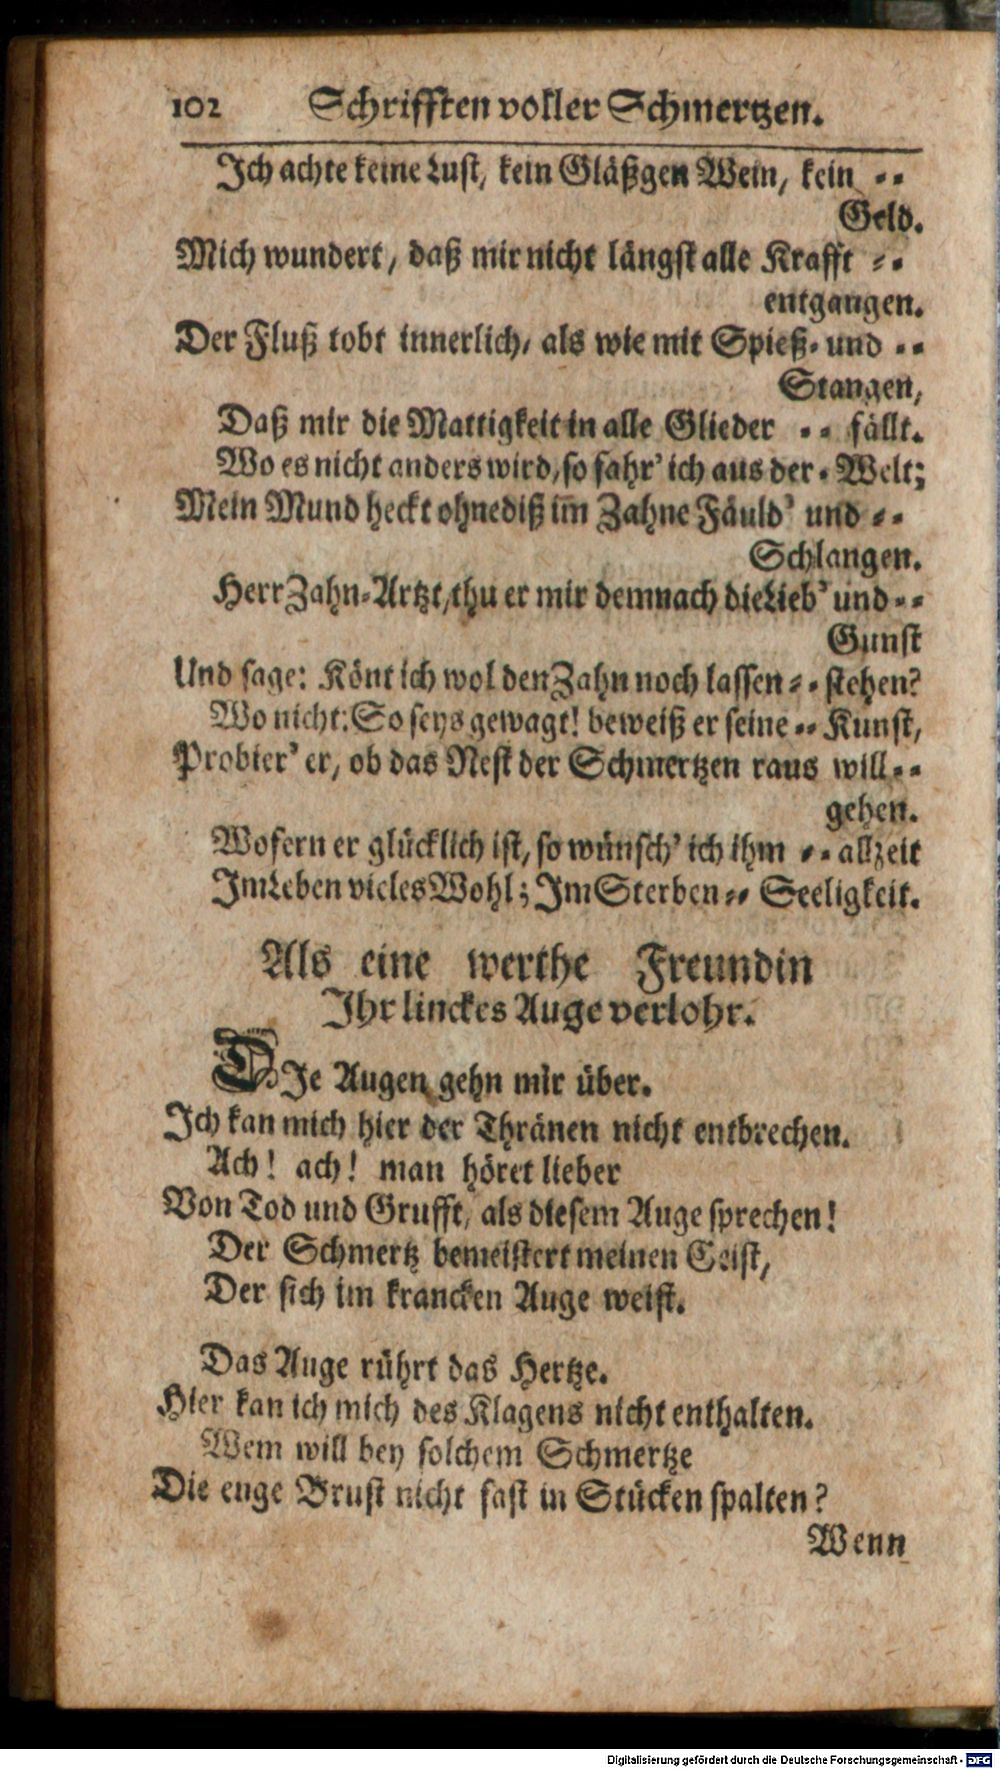 102 Schrifften voller Schmertzen.
Ich achte keine Lust, kein Gläßgen Wein, kein ⸗⸗
Geld.
Mich wundert, daß mir nicht längst alle Krafft ⸗⸗
entgangen.
Der Fluß tobt innerlich, als wie mit Spieß⸗ und ⸗⸗
Stangen,
Daß mir die Mattigkeit in alle Glieder ⸗⸗ fällt.
Wo es nicht anders wird, so fahr' ich aus der ⸗ Welt;
Mein Mund heckt ohnediß im̅ Zahne Fäuld' und ⸗⸗
Schlangen.
Herr Zahn⸗Artzt, thu er mir demnach die Lieb' und ⸗⸗
Gunst
Und sage: Könt ich wol den Zahn noch lassen ⸗⸗ stehen?
Wo nicht: So seys gewagt! beweiß er seine ⸗⸗ Kunst,
Probier' er, ob das Nest der Schmertzen raus will ⸗⸗
gehen.
Wofern er glücklich ist, so wünsch' ich ihm ⸗⸗ allzeit
Im Leben vieles Wohl; Im Sterben ⸗⸗ Seeligkeit.
Als eine werthe Freundin
Ihr linckes Auge verlohr.
DIe Augen gehn mir über.
Ich kan mich hier der Thränen nicht entbrechen.
Ach! ach! man höret lieber
Von Tod und Grufft, als diesem Auge sprechen!
Der Schmertz bemeistert meinen Geist,
Der sich im krancken Auge weist.
Das Auge rührt das Hertze.
Hier kan ich mich des Klagens nicht enthalten.
Wem will bey solchem Schmertze
Die enge Brust nicht fast in Stücken spalten?
Wenn
Digitalisierung gefördert durch die Deutsche Forschungsgemeinschaft - DFG